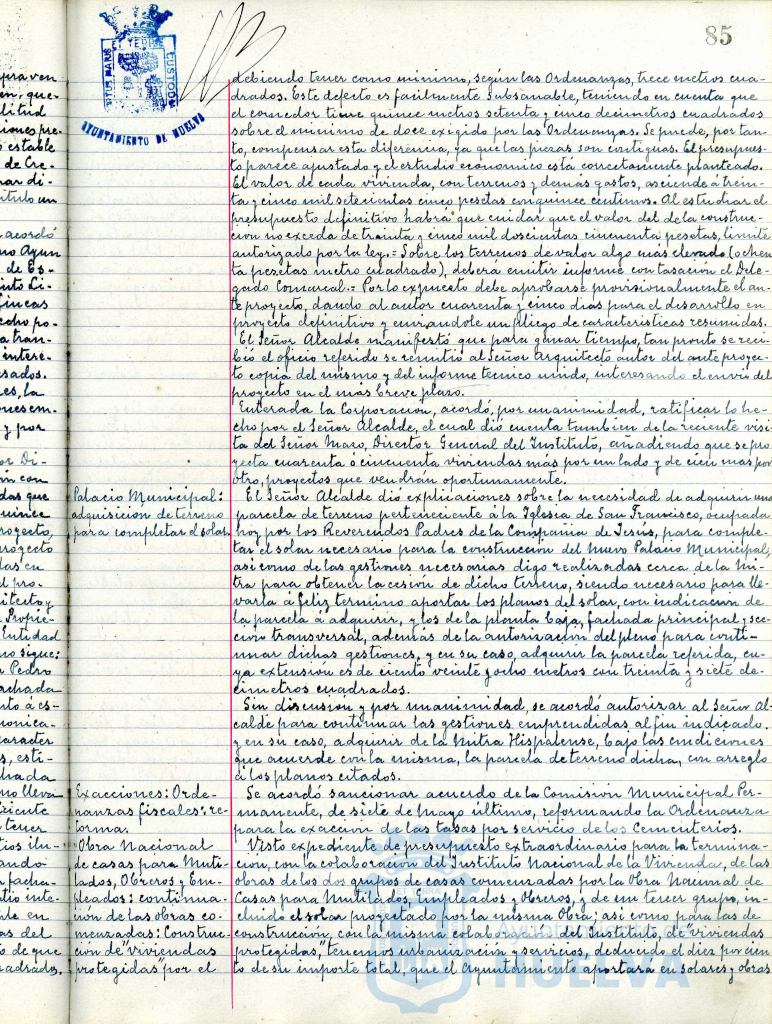 85
AYUNTAMIENTO DE HUELVA
debiendo tener como minimo, según las Ordenanzas, trece metros cua-
drados. Este defecto es facilmente subsanable, teniendo en cuenta que
el comedor tiene quince metros setenta y cinco decimetros cuadrados
sobre el minimo de doce exigido por las Ordenanzas. Se puede, por tan-
to, compensar esta diferencia, ya que las piezas son contiguas. El presupues-
to parece ajustado y el estudio economico está correctamente planteado.
El valor de cada vivienda, con terrenos y demás gastos, asciende á trein-
ta y cinco mil setecientas cinco pesetas con quince centimos. Al estudiar el
presupuesto definitivo habrá que cuidar que el valor del de la construc-
ción no exceda de treinta y cinco mil doscientas cincuenta pesetas, limite
autorizado por la ley.= Sobre los terrenos de valor algo mas elevado (ochen-
ta pesetas metro cuadrado), deberá emitir informe con tasación el Dele-
gado Comarcal.= Por lo expuesto debe aprobarse provisionalmente el an-
te proyecto, dando al autor cuarenta y cinco dias para el desarrollo en
proyecto definitivo y enviandole un pliego de caracteristicas resumidas.
El Señor Alcalde manifestó que para ganar tiempo, tan pronto se reci-
bió el oficio referido se remitió al Señor Arquitecto autor del ante proyec-
to copia del mismo y del informe tecnico unido, interesando el envio del
proyecto en el más breve plazo.
Enterada la Corporación, acordó, por unanimidad, ratificar lo he-
cho por el Señor Alcalde, el cual dió cuenta tambien de la reciente visi-
ta del Señor Mazo, Director General del Instituto, añadiendo que se pro-
yecta cuarenta ó cincuenta viviendas más por un lado y de cien mas por
otro, proyectos que vendran oportunamente.
Palacio Municipal:
adquisición de terreno
para completar el solar.
El Señor Alcalde dió explicaciones sobre la necesidad de adquirir una
parcela de terreno perteneciente á la Iglesia de San Francisco, ocupada
hoy por los Reverendos Padres de la Compañia de Jesús, para comple-
tar el solar necesario para la construcción del Nuevo Palacio Municipal,
así como de las gestiones necesarias digo realizadas cerca de la Mi-
tra para obtener la cesión de dicho terreno, siendo necesario para lle-
varla á feliz termino aportar los planos del solar, con indicación de
la parcela á adquirir, y los de la planta baja, fachada principal y sec-
ción transversal, además de la autorización del pleno para conti-
nuar dichas gestiones, y en su caso, adquirir la parcela referida, cu-
ya extensión es de ciento veinte y ocho metros con treinta y siete de-
cimetros cuadrados.
Sin discusión y por unanimidad, se acordó autorizar al Señor Al-
calde para continuar las gestiones emprendidas al fin indicado
y en su caso, adquirir de la Mitra Hispalense, bajo las condiciones
que acuerde con la misma, la parcela de terreno dicha, con arreglo
á los planos citados.
Exacciones: Orde-
nanzas fiscales: re-
forma.
Se acordó sancionar acuerdo de la Comisión Municipal Per-
manente, de siete de Mayo último, reformando la Ordenanza
para la exacción de las tasas por servicio de los Cementerios.
Obra Nacional
de casas para Muti-
lados, Obreros y Em-
pleados: continua-
ción de las obras co-
menzadas: Construc-
ción de "viviendas
protegidas" por el
Visto expediente de presupuesto extraordinario para la termina-
ción, con la colaboración del Instituto Nacional de la Vivienda, de las
obras de los dos grupos de casas comenzadas por la Obra Nacional de
Casas para Mutilados, Empleados y Obreros, y de un tercer grupo, in-
cluido el solar proyectado por la misma Obra; así como para las de
construcción, con la misma colaboración del Instituto, de "viviendas
protegidas", terrenos urbanización y servicios, deducido el diez por cien-
to de su importe total, que el Ayuntamiento aportara en solares y obras
Ayuntamiento de
HUELVA